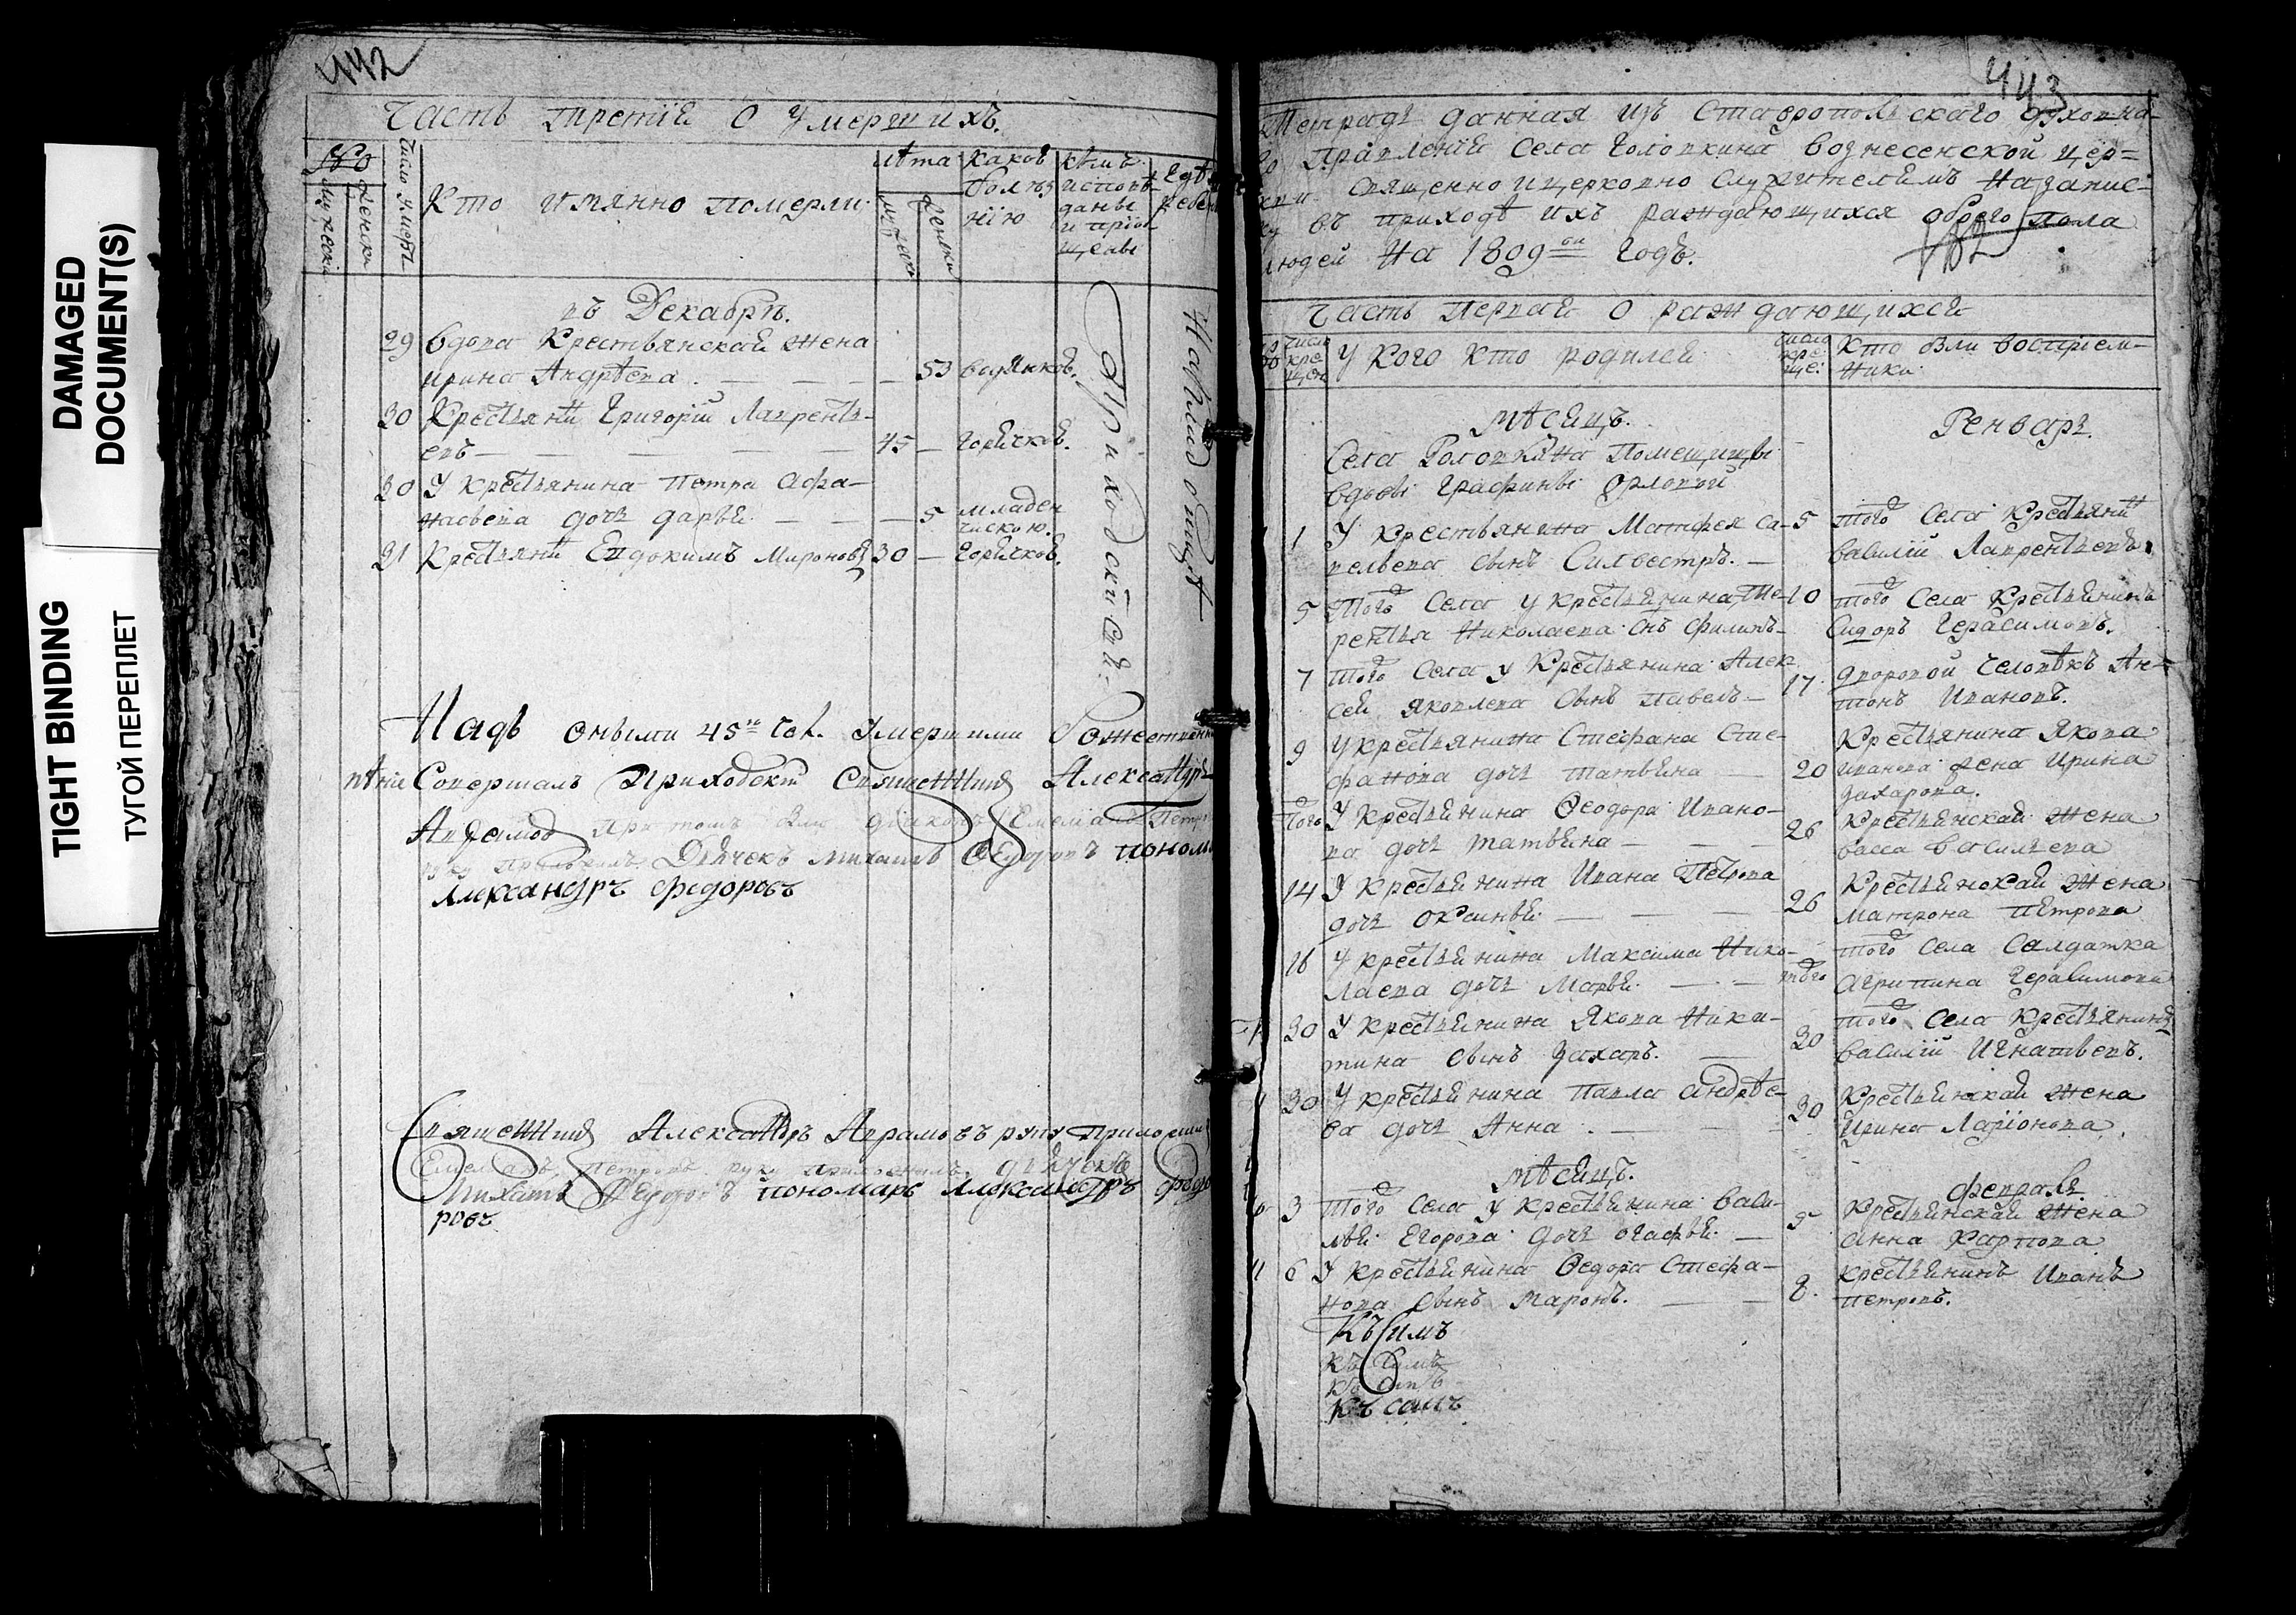 DAMAGED
DOCUMENT(S)
TIGHT BINDING
ТУГОЙ ПЕРЕПЛЕТ
442
Часть третiя О Умершихъ.
№
Число умерш
Кто имянно померли
лѣта
каков
болѣз
нїю
кѣмъ
исповѣ
даны
и прїоб
щены
гдѣ
погребены
мужеска
женска
въ Декабрѣ.
29 вдова Крестьянская жена
ирина Андрѣева. — — — — 53 водянков.
30 Крестьянн Григорiй Лавренть-
евъ — — — — 45 — горячков.
30 У крестьянина Петра Афа-
насьева дочь дарья — — — 5 младен
ческою.
31 Крестьянн Евдокимъ Мироновъ 30 — горячков.
На кладбищѣ
Приходской
Надъ оными 45 чел. Умершими
пѣнiе Совершалъ Приходской Священникъ Александръ
Аврамов при томъ был дiаконъ Емелiанъ Петр
руку приложилъ Дьячекъ михаилъ Федоровъ поном
Александръ федоровъ
Священникъ Александръ Аврамовъ руку приложил
Емелианъ Петровъ руку приложилъ дьячекъ
Михаилъ Федоровъ пономарь Александръ федо
ровъ
443
Тетрадь данная изъ Ставропольскаго духовна-
го Правленiя Села Головкина вознесенской цер=
кви Священно и церковно служителямъ На запис-
ку въ приходѣ ихъ раждающихся обоего пола
людей На 1809 ои годъ.
Часть Первая О раждающихся
число
У кого кто родился
число
кре
ще:
Кто были восприем-
ники
мѣсяцъ.
Генварь.
Села Головкина Помещицы
вдовы Графини Орловой
1 У Крестьянина Матфея Са-
вельева сынъ Силвестръ. —
5 того Села Крестьянн
василiй Лаврентьевъ.
5 Того Села у крестьянина Те-
рентья Николаева снъ филипъ—
10 того Села Крестьянинъ
Сидоръ Герасимовъ.
7 того Села у Крестьянина Алек
сея яковлева сынъ павелъ —
17. дворовой человѣкъ Ан-
тонъ Ивановъ.
9 У крестьянина Стефана Сте-
фанова дочь татьяна —
20 Крестьянина Якова
иванова жена Ирина
захарова.
Того У Крестьянина Феодора Ивано-
ва дочь татьяна — — —
26 Крестьянская жена
васса василиева
14 У крестьянина Ивана Петрова
дочь Оксинья — — —
26 Крестьянская жена
матрона Петрова
16 У крестьянина Максима Нико-
лаева дочь Марья. — —
того того Села Салдатка
агрипина Герасимова
30 У крестьянина Якова Ники-
тина сынъ Захаръ. —
30 того Села Крестьянинъ
василiй Игнатьевъ.
30 У крестьянина Павла андрѣе-
ва дочь Анна . — — —
30 Крестьянская жена
Ирина Ларiонова.
мѣсяцъ.
февраль
3 Того Села у крестьянина васи-
лья Егорова дочь огафья. —
5 Крестьянская жена
анна Карпова
6 У крестьянина Федора Стефа-
нова сынъ Маронъ. — —
8. крестьянинъ Иванъ
петровъ.
Къ симъ
къ симъ
къ симъ
къ симъ